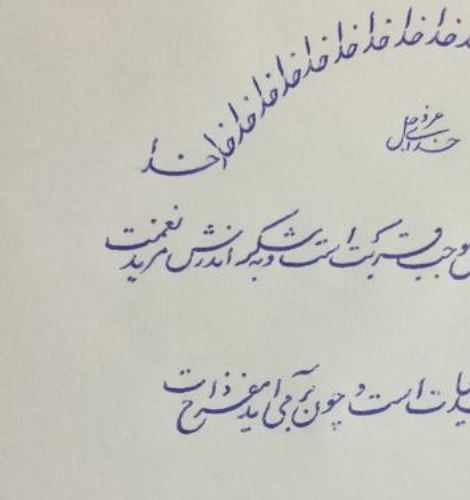 خدا خدا خدا خدا خدا خدا خدا خدا خدا خدا
خدای عزوجل
موجب قربت است و به شکر اندرش مزید نعمت
حیات است و چون بر می آید مفرح ذات